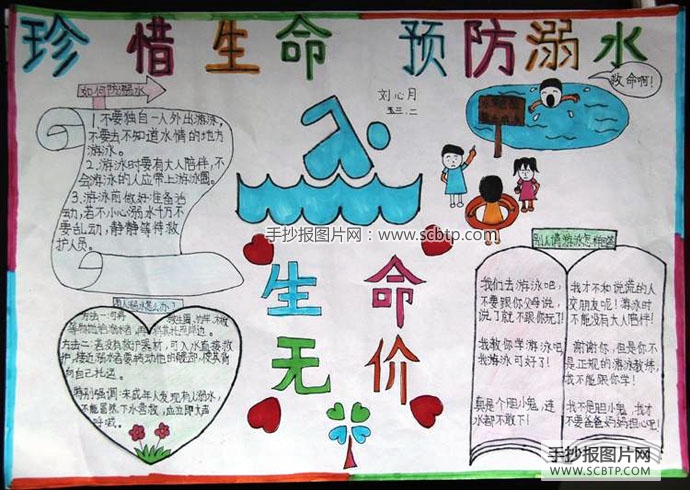 珍惜生命 预防溺水
如何防溺水
1.不要独自一人外出游泳,
不要去不知道水情的地方
游泳。
2.游泳时要有大人陪伴,不
会游泳的人应带上游泳圈。
3.游泳前做好准备活
动,若不小心溺水千万不
要乱动,静静等待救
护人员。
刘心月
五三.二
救命啊!
手抄报图片网:www.scbtp.com
生命
无价
方法一:可将
方法二:若没有救护器材,可入水直接救
护,接近溺水者要转动他的髋部,使其背
向自己
特别强调:未成年人发现有人溺水,
不能冒然下水营救,应立即大声
呼喊。
别人请游泳怎样回答
我们去游泳吧,
不要跟你父母说,
说了就不跟你玩了!
我教你学游泳吧
我游泳可好了!
真是个胆小鬼,连
水都不敢下!
我才不和说谎的人
交朋友呢!游泳时
不能没有大人陪伴!
谢谢你,但是你不
是正规的游泳教练,
我不能跟你学!
我不是胆小鬼,我才
不要爸爸妈妈担心吧!
手抄报图片网
WWW.SCBTP.COM